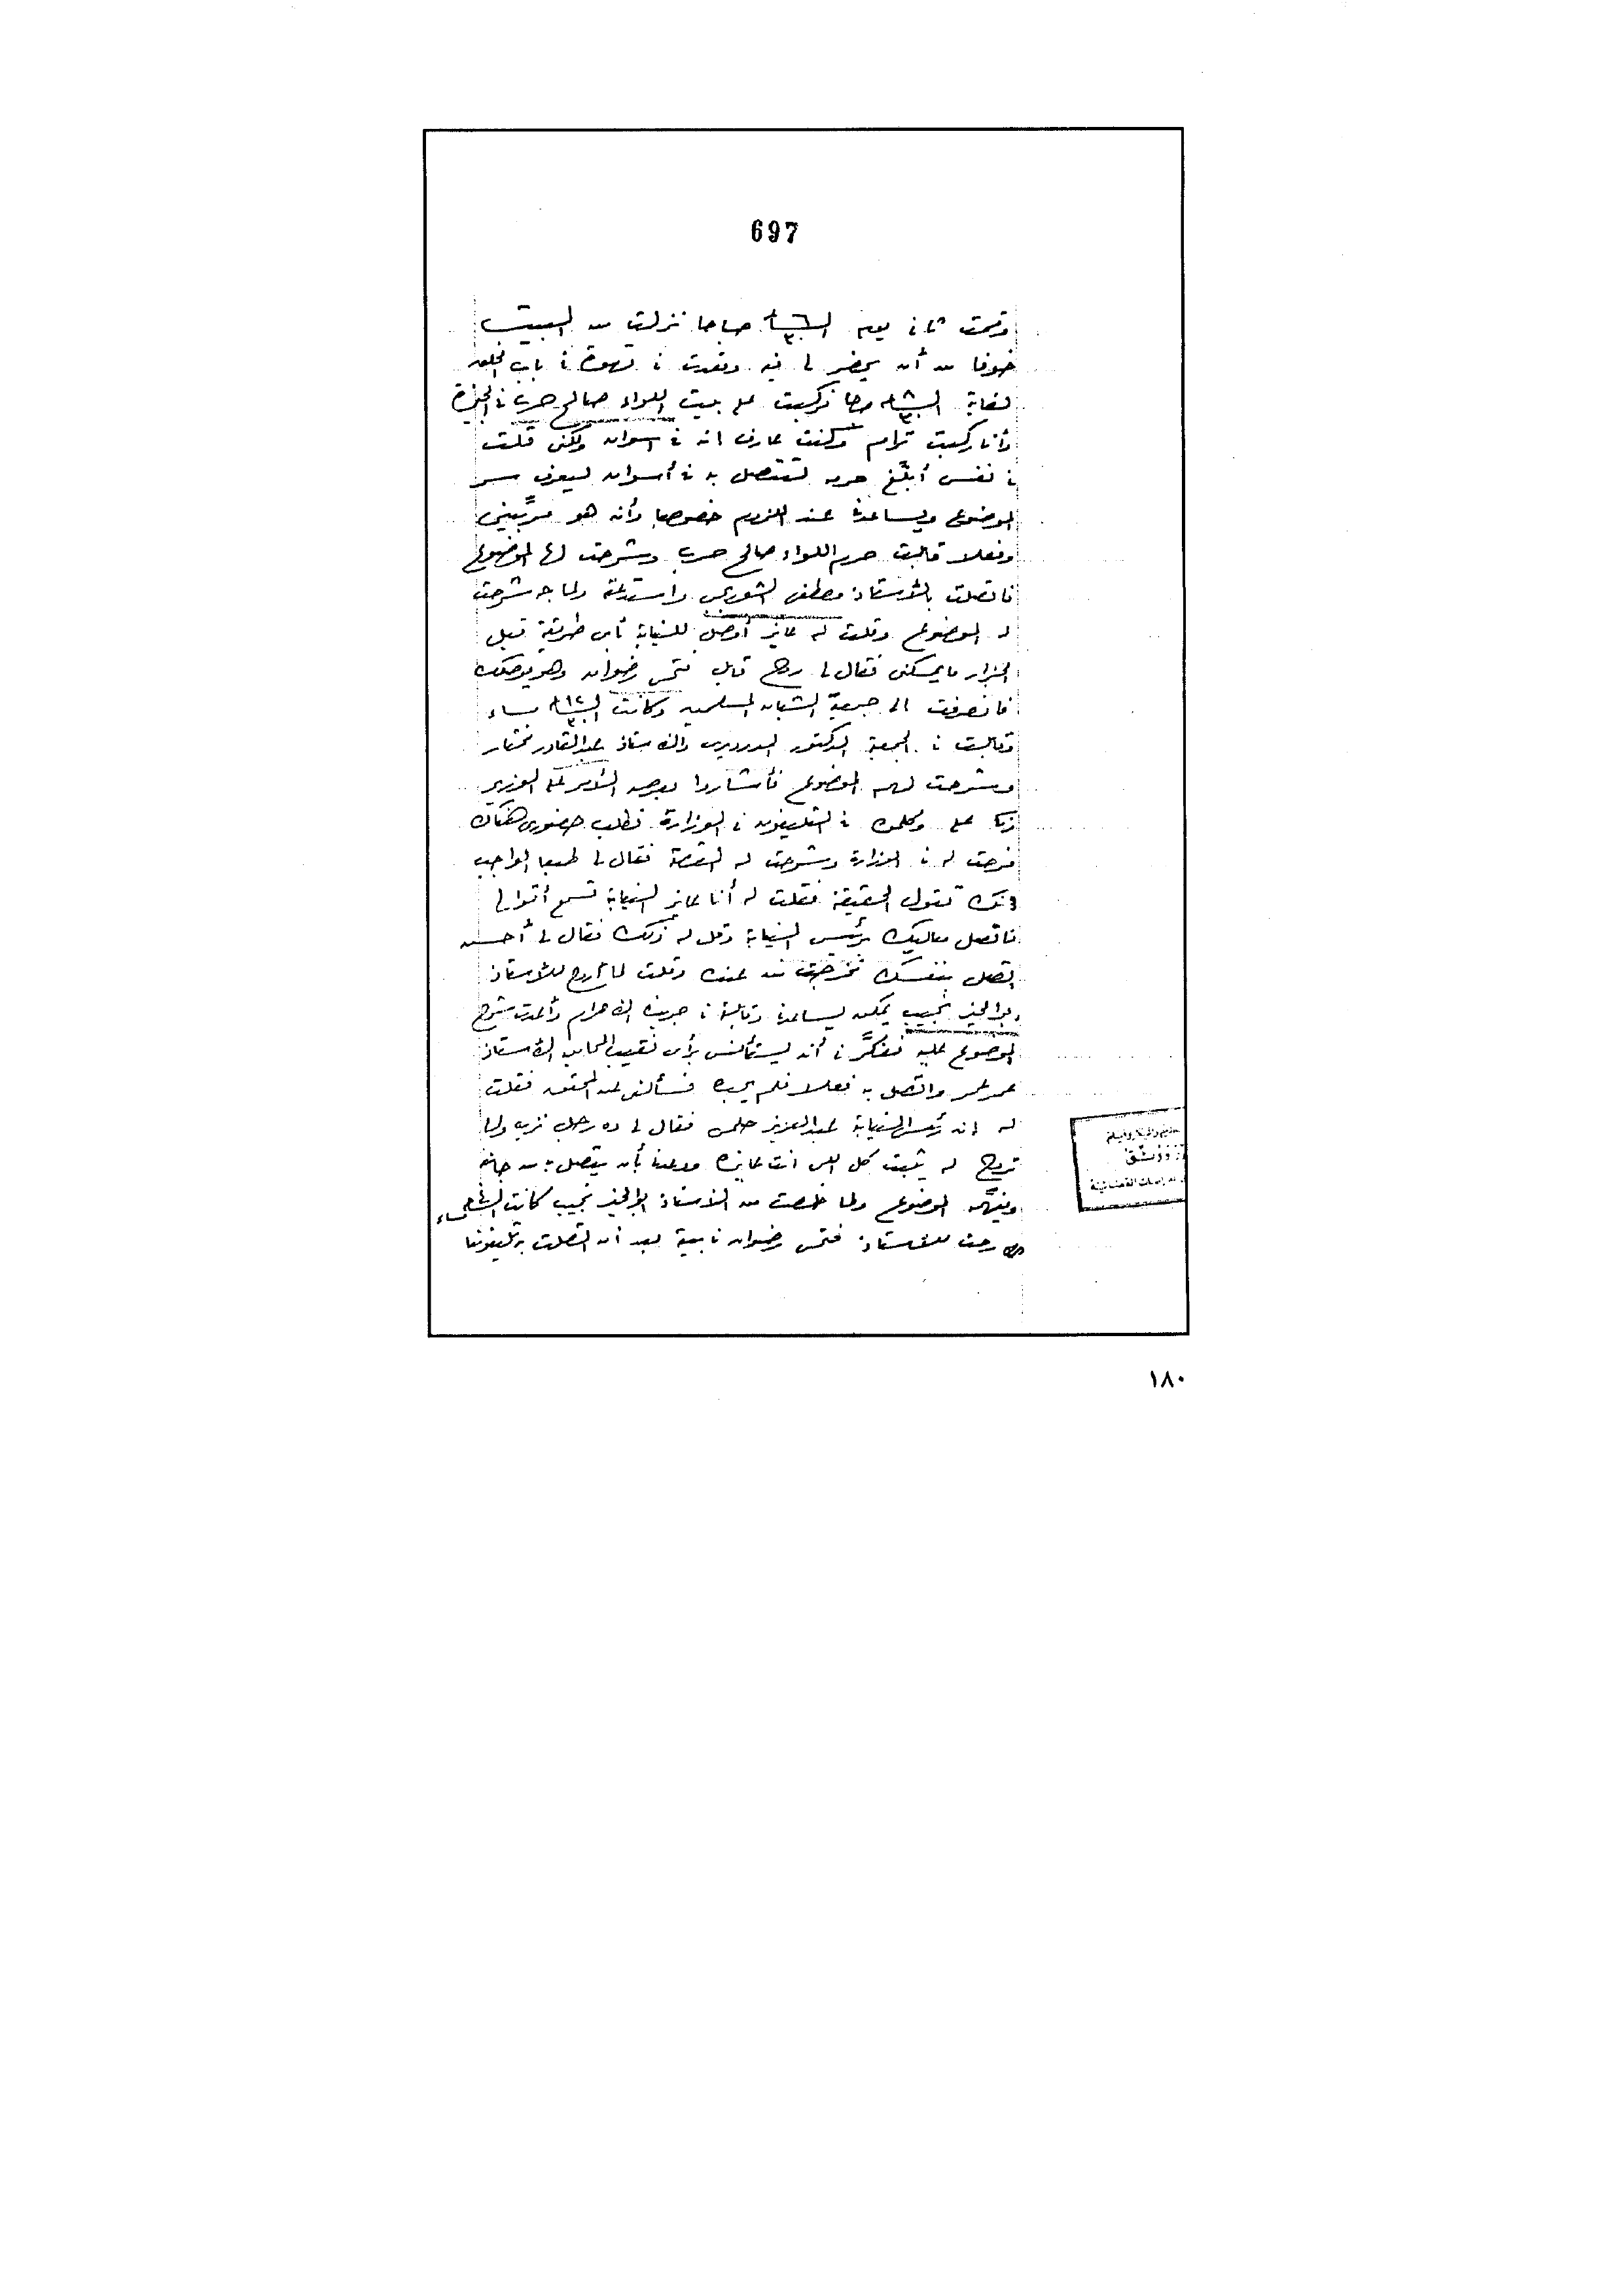 697
وقمت ثاني يوم صباحا نزلت من البيت
خوفا من أن يحضر لي فيه وقعدت في قهوة في باب الخلق
لغاية الساعة صباحا فركبت على بيت اللواء صالح حرب في الجيزة
وأنا ركبت ترام وكنت عارف انه في اسوان ولكني قلت
في نفسي أبلّغ حرمه لتتصل به في أسوان ليعرف سر
الموضوع ويساعدنى عند اللزوم خصوصا وأنه هو مربّينى
وفعلا قابلت حرم اللواء صالح حرب وشرحت لها الموضوع
فاتصلت بالأستاذ مصطفى الشوربجى واستدعته ولما جه شرحت
له الموضوع وقلت له عايز أوصل للنيابة بأى طريقة قبل
الجزار ما يمسكنى فقال لى روح قابل فتحى رضوان وهو يوصلك
فانصرفت الى جمعية الشبان المسلمين وكانت الساعة مساء
وقابلت في الجمعية الدكتور الدرديرى والاستاذ عبدالقادر مختار
وشرحت لهم الموضوع فأشاروا بعرض الأمر على الوزير
زكى على وكلموه في التليفون في الوزارة فطلب حضورى هناك
فرحت له في الوزارة وشرحت له القصة فقال لى طبعا الواجب
انك تقول الحقيقة فقلت له أنا عايز النيابة تسمع أقوالى
فاتصل معاليك برئيس النيابة وقل له ذلك فقال لى أحسن
اتصل بنفسك فخرجت من عنده وقلت لما أروح للأستاذ
ابو الخير نجيب يمكن يساعدنى وقابلته في جريدة الاهرام وأعدت شرح
الموضوع عليه ففكّر في أنه يستأنس برأى نقيب المحامين الاستاذ
عمر عمر واتصل به فعلا فلم يجده فسألنى عن المحقق فقلت
له انه رئيس النيابة عبدالعزيز حلمى فقال لى ده رجل نزيه ولما
تروح له يثبت كل اللى انت عايزه ووعدنى بأن يتصل به من جانبه
ويفهّمه الموضوع ولما خلصت من الاستاذ ابو الخير نجيب كانت الساعة مساء
رحت للأستاذ فتحى رضوان في بيته بعد أن اتصلت به تليفونيا
١٨٠